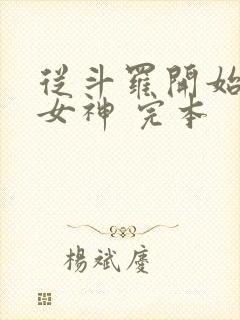 從斗羅開始
女神 完本
楊斌慶